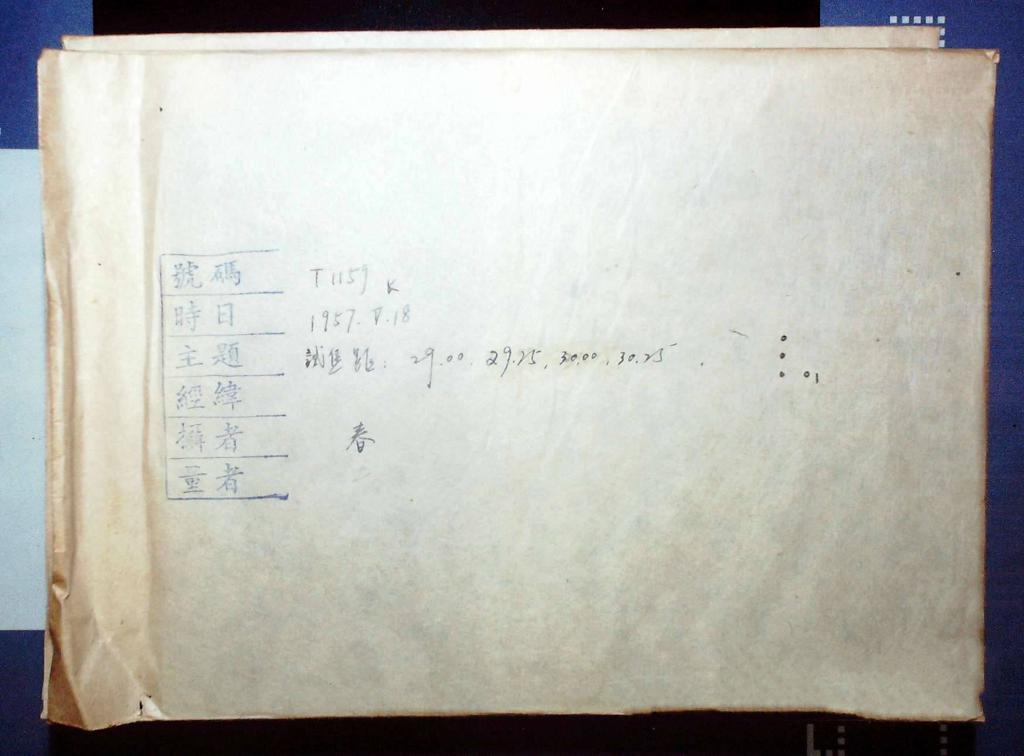 號碼 T1159 K
時日 1957. V. 18
主題 試焦距: 29.00, 29.25, 30.00, 30.25.
經緯
攝者 春
量者